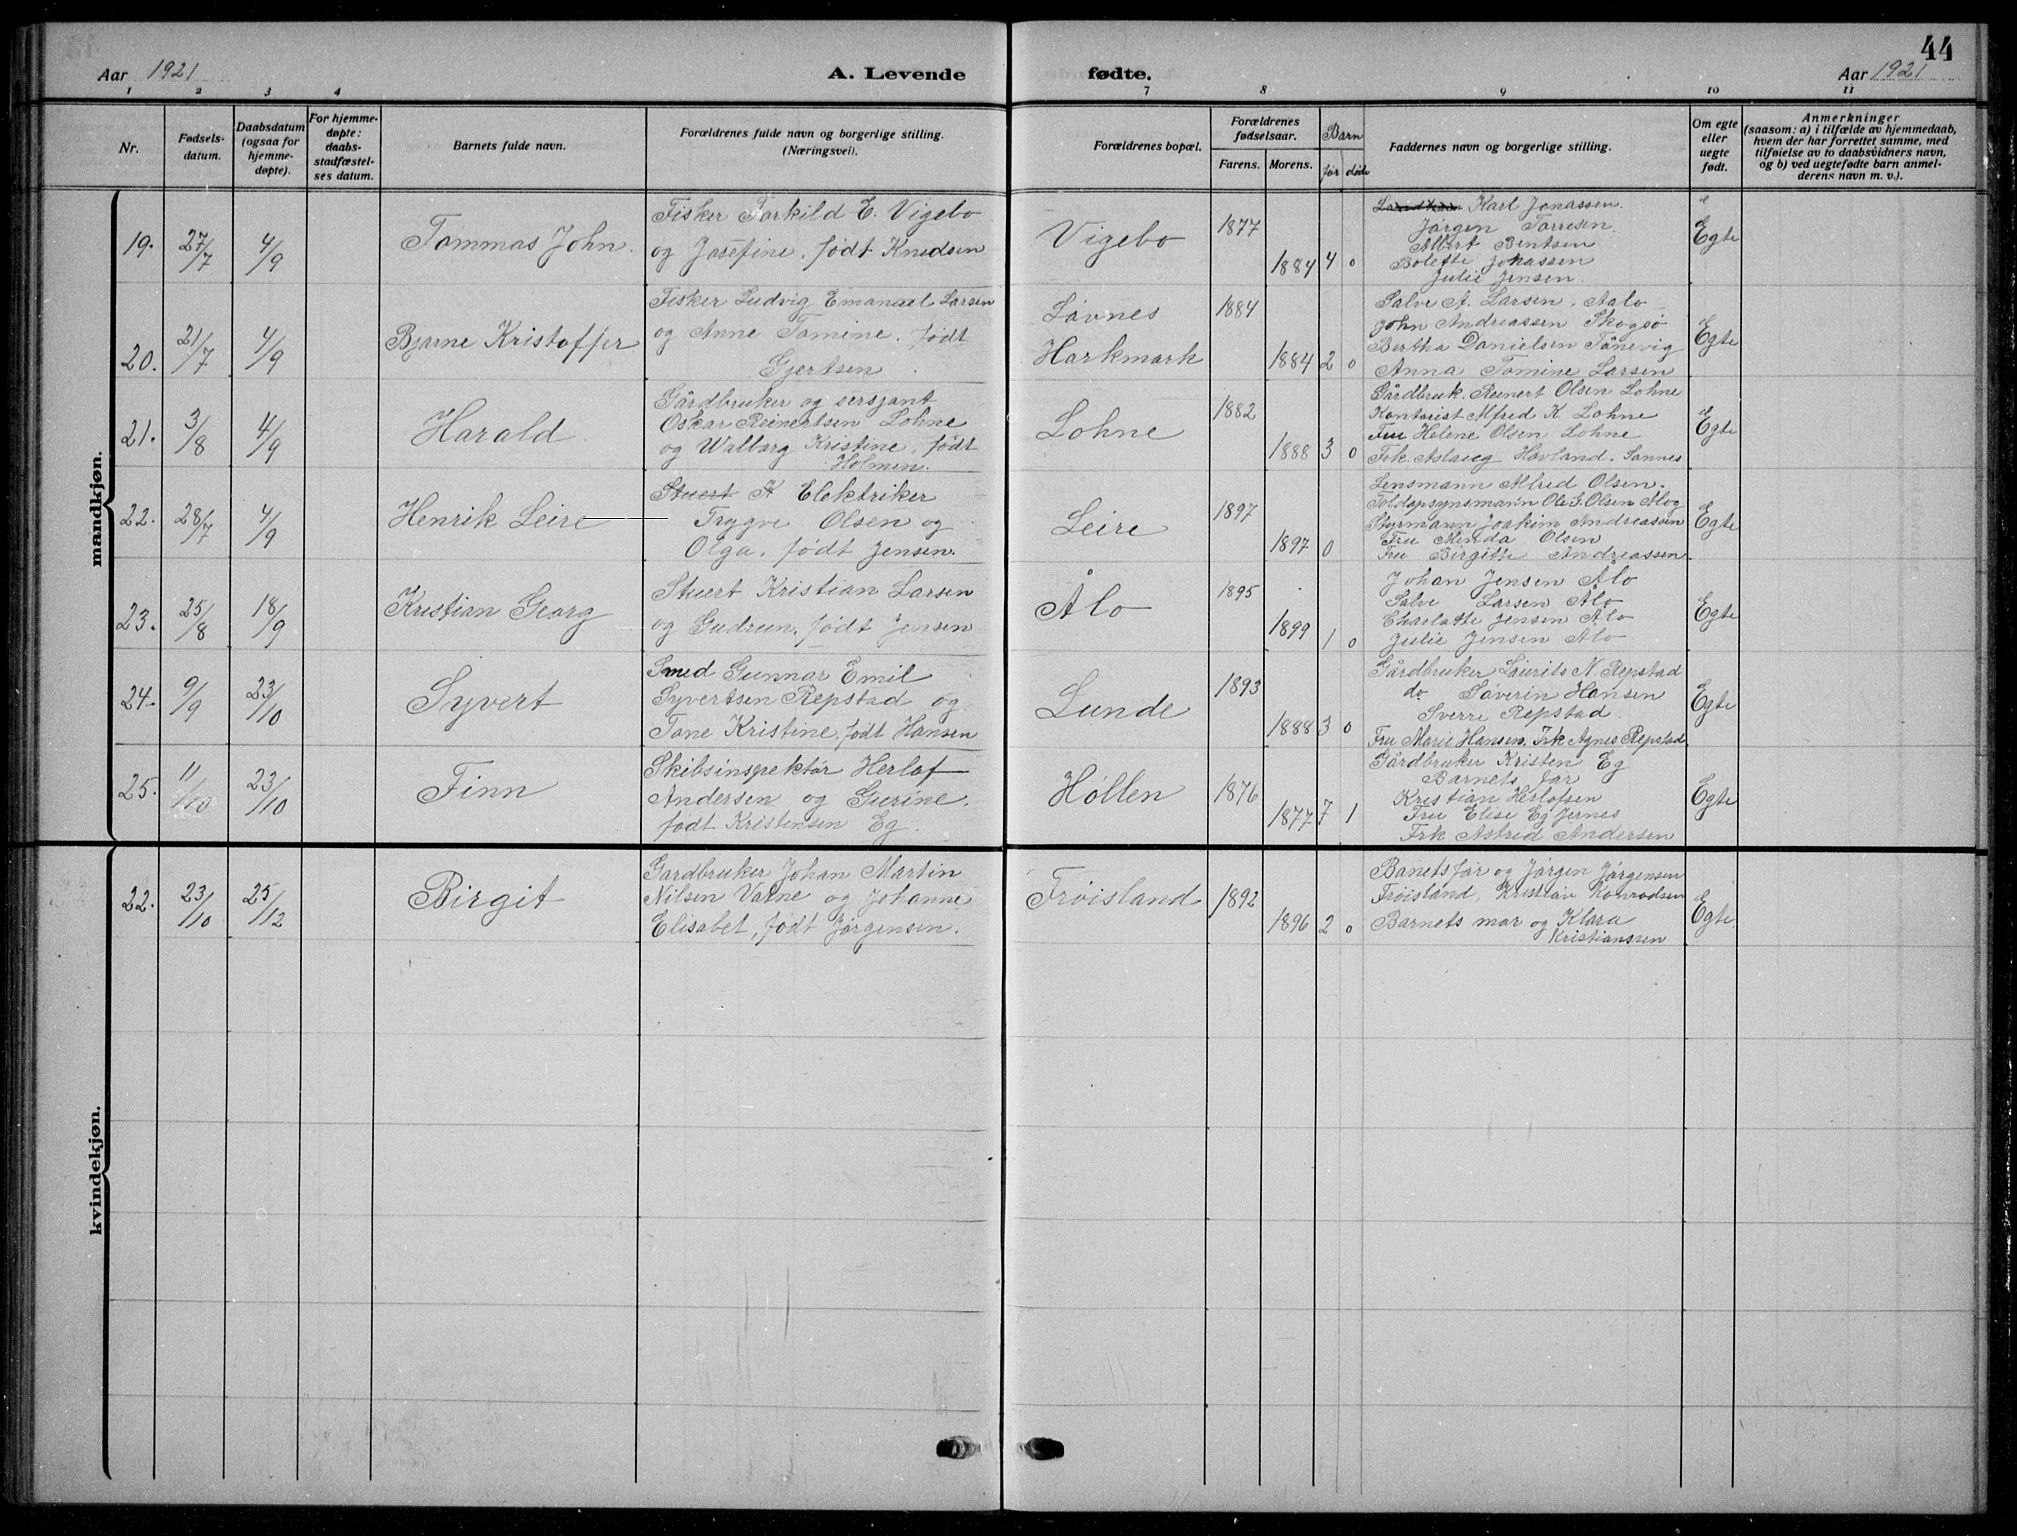 44
Aar 1921
A. Levende
fødte.
Aar 1921
1 2 3 4 7 8 9 10 11
Nr.
Fødsels-
datum.
Daabsdatum
(ogsaa for
hjemme-
døpte).
For hjemme-
døpte:
daabs-
stadfæstel-
ses datum.
Barnets fulde navn.
Forældrenes fulde navn og borgerlige stilling.
(Næringsvei).
Forældrenes bopæl.
Forældrenes
fødselsaar.
Farens. Morens.
Barn
før døde
Faddernes navn og borgerlige stilling.
Om egte
eller
uegte
født.
Anmerkninger
(saasom: a) i tilfælde av hjemmedaab,
hvem der har forrettet samme, med
tilføielse av to daabsvidners navn,
og b) ved uegtefødte barn anmel-
derens navn m. v.).
mandkjøn.
19. 27/7 4/9 Tommas John.
Fisker Torkild E. Vigebo
og Josefine, født Knudsen
Vigebo 1877 1884 4 0
Karl Jonassen.
Jørgen Torresen.
Albert Bentsen
Bolette Jonassen
Julie Jensen.
Egte
20. 21/7 4/9 Bjarne Kristoffer
Fisker Ludvig Emanuel Larsen
og Anne Tomine, født
Gjertsen
Løvnes
Harkmark
1884 1884 2 0
Salve A. Larsen. Aalo
John Andreassen Skogsø
Bertha Danielsen Tånevig
Anna Tomine Larsen
Egte
21. 3/8 4/9 Harald
Gårdbruker og sersjant
Oskar Reinertsen Lohne
og Walborg Kristine, født
Holmen.
Lohne 1882 1888 3 0
Gårdbruk. Reinert Olsen Lohne
Kontorist Alfred K. Lohne
Fru Helene Olsen Lohne
Frk. Aslaug Hovland. Sannes
Egte
22. 28/7 4/9 Henrik Leire
Stuert K Elektriker
Trygve Olsen og
Olga, født Jensen.
Leire 1897 1897 0
Lensmann Alfred Olsen.
Toldopsynsmann Ole G. Olsen Alog
Styrmann Joakim Andreassen
Fru Minda Olsen
Fru Birgitte Andreassen
Egte
23. 25/8 18/9 Kristian Georg
Stuert Kristian Larsen
og Gudrun, født Jensen
Ålo 1895 1899 1 0
Johan Jensen Ålo
Salve Larsen Ålo
Charlotte Jensen Ålo
Julie Jensen Alo
Egte
24. 9/9 23/10 Syvert
Smed Gunnar Emil
Syvertsen Repstad og
Tone Kristine, født Hansen
Lunde 1893 1888 3 0
Gårdbruker Laurits N. Repstad
do Søverin Hansen
Sverre Repstad.
Fru Marie Hansen. Frk Agnes Repstad
Egte
25. 11/10 23/10 Finn
Skibsinspektør Herlof
Andersen og Gurine,
født Kristensen Eg.
Høllen 1876 1877 7 1
Gårdbruker Kristen Eg
Barnets far
Kristian Herlofsen
Fru Elise Eg Jernes
Frk Astrid Andersen
Egte
kvindekjøn.
22. 23/10 25/12 Birgit
Gardbruker Johan Martin
Nilsen Vatne og Johanne
Elisabet, født Jørgensen.
Frøisland 1892 1896 2 0
Banets far og Jørgen Jørgensen
Frøisland, Kristian Konradsen
Barnets mor og Klara
Kristianssen
Egte.